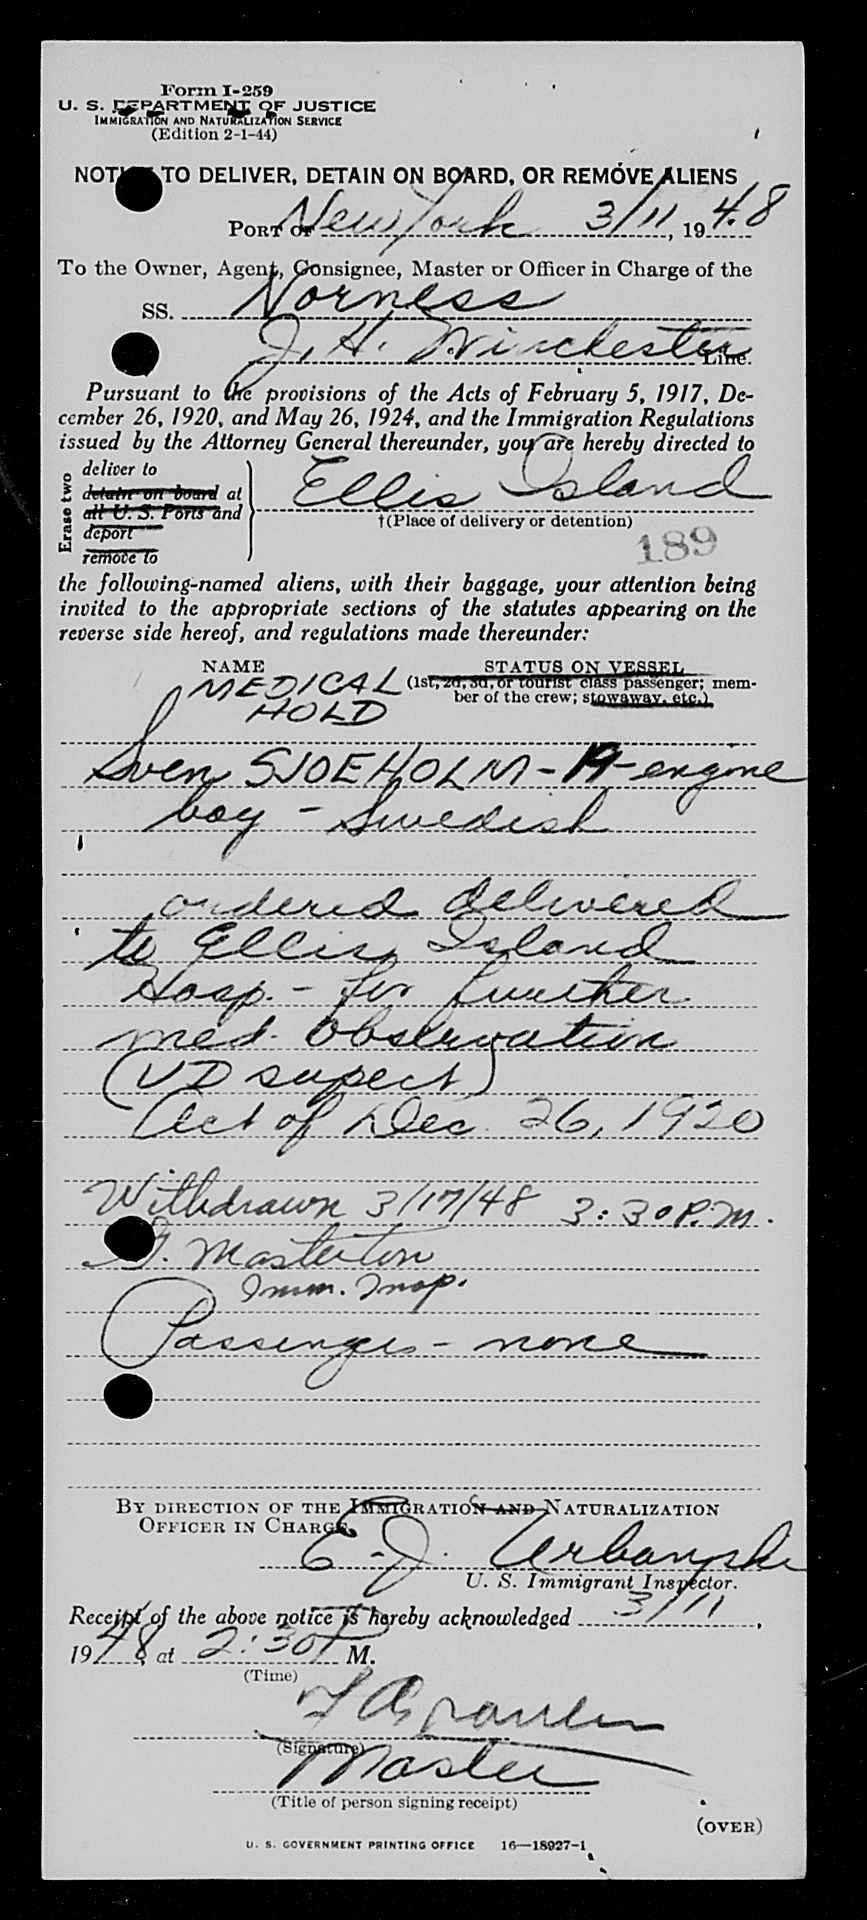 Form I-259
U. S. DEPARTMENT OF JUSTICE
IMMIGRATION AND NATURALIZATION SERVICE
(Edition 2-1-44)
NOTICE TO DELIVER, DETAIN ON BOARD, OR REMOVE ALIENS
PORT OF New York 3/11, 1948
To the Owner, Agent, Consignee, Master or Officer in Charge of the
SS. Norness
J. H. Winchester Line.
Pursuant to the provisions of the Acts of February 5, 1917, De-
cember 26, 1920, and May 26, 1924, and the Immigration Regulations
issued by the Attorney General thereunder, you are hereby directed to
Erase two
deliver to
detain on board at
all U. S. Ports and
deport
remove to
Ellis Island
†(Place of delivery or detention)
189
the following-named aliens, with their baggage, your attention being
invited to the appropriate sections of the statutes appearing on the
reverse side hereof, and regulations made thereunder:
NAME STATUS ON VESSEL
MEDICAL (1st, 2d, 3d, or tourist class passenger; mem-
HOLD ber of the crew; stowaway, etc.)
Sven SJOEHOLM - 19 - engine
boy - Swedish
ordered delivered
to Ellis Island
Hosp. - for further
med. observation
(VD supect)
Act of Dec. 26, 1920
Withdrawn 3/17/48 3:30 P.M.
G. Masterton
Imm. Insp.
Passengers - none
BY DIRECTION OF THE IMMIGRATION AND NATURALIZATION
OFFICER IN CHARGE,
E. J. Urbanski
U. S. Immigrant Inspector.
Receipt of the above notice is hereby acknowledged 3/11,
1948, at 2:30 P M.
(Time)
(Signature)
Master
(Title of person signing receipt)
(OVER)
U. S. GOVERNMENT PRINTING OFFICE 16—18927-1